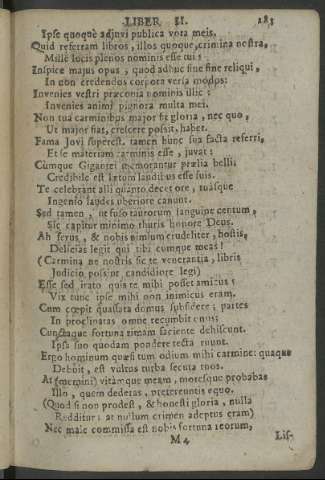 LIBER II. 183
Ipse quoque adjuvi publica vota meis.
Quid referam libros, illos quoque, crimina nostra,
Mille locis plenos nominis esse tui?
Inspice majus opus, quod adhuc sine fine reliqui,
In non credendos corpora versa modos:
Invenies vestri præconia nominis illic:
Invenies animi pignora multa mei.
Non tua carminibus major fit gloria, nec quo,
Ut major fiat, crescere possit, habet.
Fama Jovi superest. tamen hunc sua facta referri,
Et se materiam carminis esse, juvat:
Cumque Gigantei memorantur prælia belli,
Credibile est lætum laudibus esse suis.
Te celebrant alii quanto decet ore, tuasque
Ingenio laudes uberiore canunt.
Sed tamen, ut fuso taurorum sanguine centum,
Sic capitur minimo thuris honore Deus.
Ah ferus, & nobis nimium crudeliter, hostis,
Delicias legit qui tibi cumque meas!
(Carmina ne nostris sic te venerantia, libris
Judicio possint, candidiore legi)
Esse sed irato quis te mihi posset amicus?
Vix tunc ipse mihi non inimicus eram.
Cum cœpit quassata domus subsidere; partes
In proclinatas omne recumbit onus:
Cunctaque fortuna rimam faciente dehiscunt.
Ipsa suo quodam pondere tecta ruunt.
Ergo hominum quæsitum odium mihi carmine: quaque
Debuit, est vultus turba secuta tuos.
At (memini) vitamque meam, moresque probabas
Illo, quem dederas, prætereuntis equo.
(Quod si non prodest, & honesti gloria, nulla
Redditur: at nullum crimen adeptus eram)
Nec male commissa est nobis fortuna reorum,
M 4 Lis-